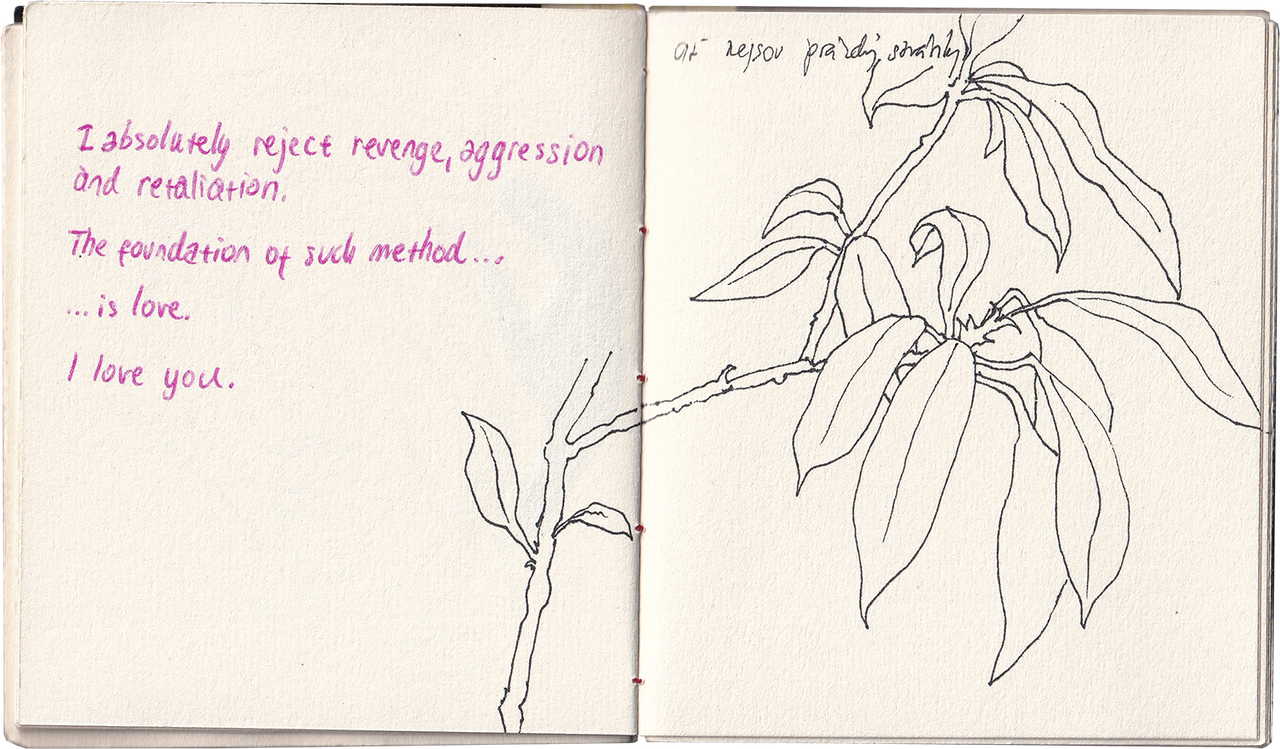 I absolutely reject revenge, aggression
and retaliation.
The foundation of such method...
...is love.
I love you.
ať nejsou prázdný stránky